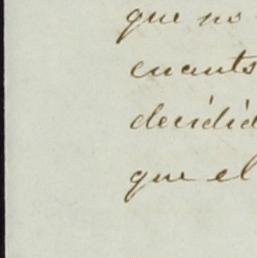 que no
cuants
decidid
que el